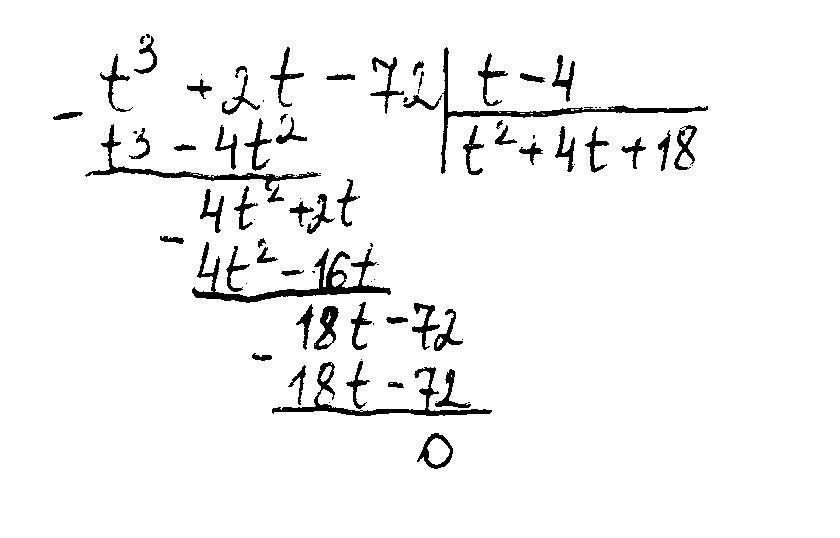 t³ + 2t - 72 | t - 4
- t³ - 4t² | t² + 4t + 18
4t² + 2t
- 4t² - 16t
18t - 72
- 18t - 72
0